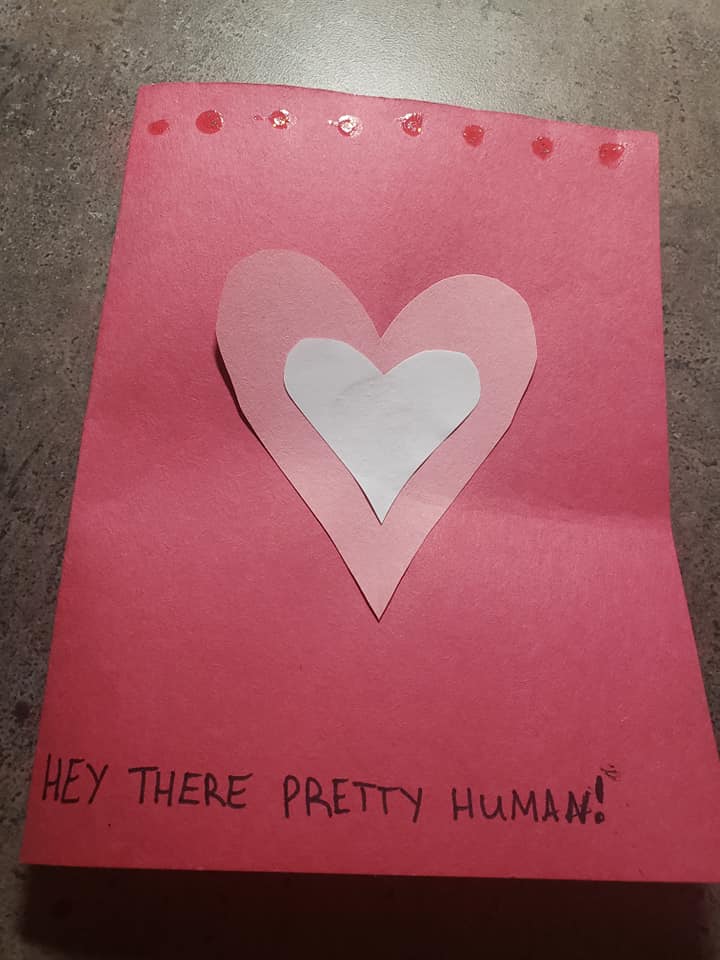 HEY THERE PRETTY HUMAN!